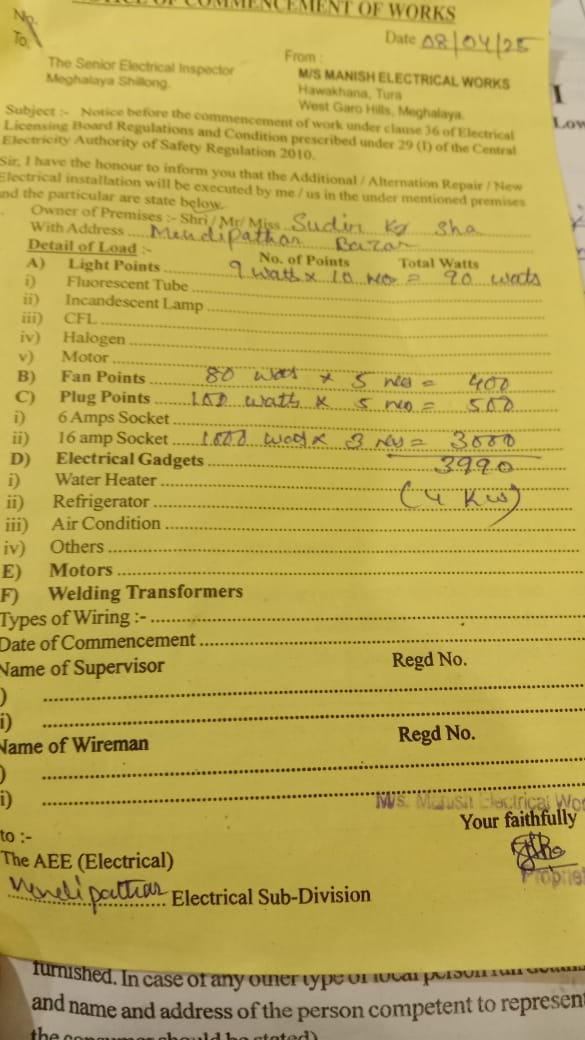 OF COMMENCEMENT OF WORKS
No.
Date 08/04/25
To,
The Senior Electrical Inspector
Meghalaya Shillong.
From :
M/S MANISH ELECTRICAL WORKS
Hawakhana, Tura
West Garo Hills, Meghalaya.
Subject :- Notice before the commencement of work under clause 36 of Electrical
Licensing Board Regulations and Condition prescribed under 29 (I) of the Central
Electricity Authority of Safety Regulation 2010.
Sir, I have the honour to inform you that the Additional / Alternation Repair / New
Electrical installation will be executed by me / us in the under mentioned premises
and the particular are state below.
Owner of Premises :- Shri / Mr/ Miss Sudin Kr Sha
With Address Mendipathar Bazar
Detail of Load :- No. of Points Total Watts
A) Light Points 9 watts x 10 no = 90 watts
i) Fluorescent Tube
ii) Incandescent Lamp
iii) CFL
iv) Halogen
v) Motor
B) Fan Points 80 watt x 5 nos = 400
C) Plug Points 100 watts x 5 no = 500
i) 6 Amps Socket
ii) 16 amp Socket 1000 watt x 3 nos = 3000
D) Electrical Gadgets 3990
i) Water Heater
(4 Kw)
ii) Refrigerator
iii) Air Condition
iv) Others
E) Motors
F) Welding Transformers
Types of Wiring :-
Date of Commencement
Name of Supervisor Regd No.
)
i)
Name of Wireman Regd No.
)
i)
M/s. Manish Electrical Wor
Your faithfully
Propriet
to :-
The AEE (Electrical)
Mendipathar Electrical Sub-Division
furnished. In case of any other type of local person full details
and name and address of the person competent to represent
the consumer should be stated)
I
Low